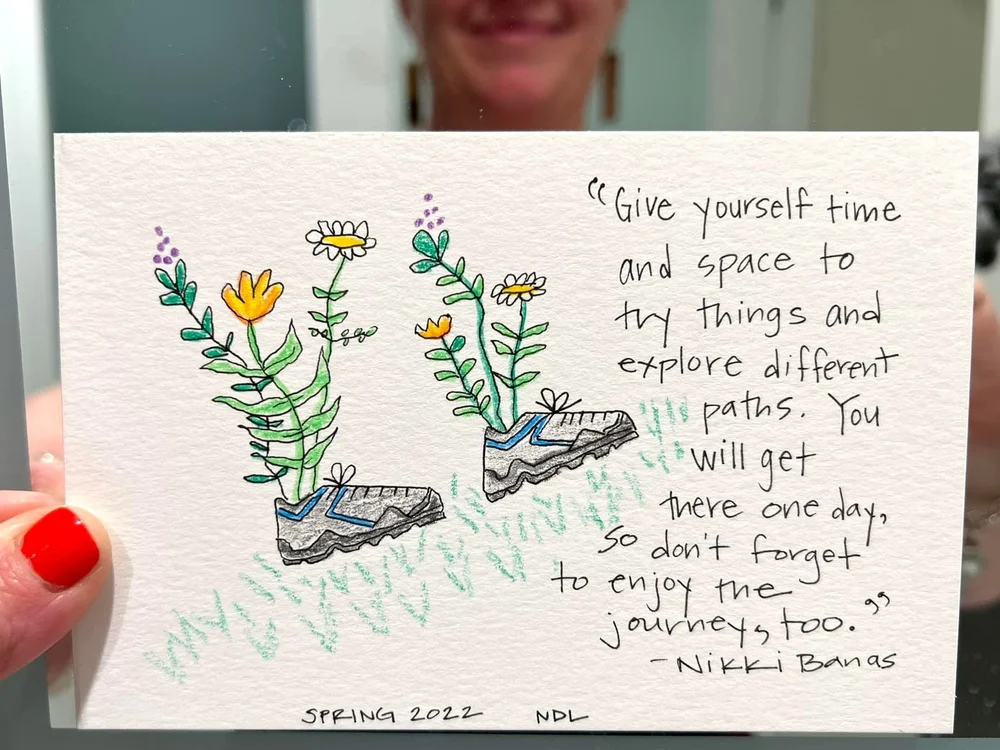 “Give yourself time
and space to
try things and
explore different
paths. You
will get
there one day,
so don't forget
to enjoy the
journey, too.”
- Nikki Banas
SPRING 2022 NDL